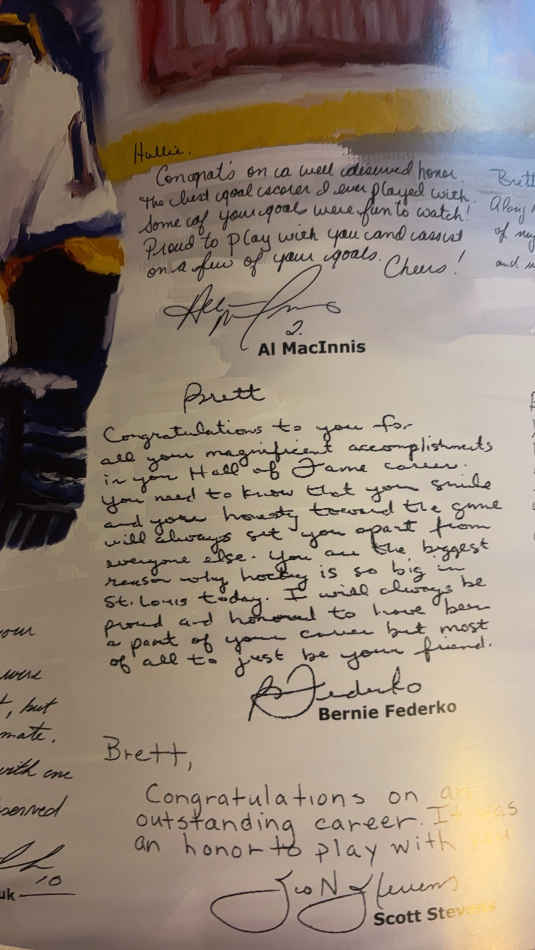 Hullie.
Congrat's on a well deserved honor.
The best goal scorer I ever played with.
Some of your goals were fun to watch!
Proud to play with you and assist
on a few of your goals. Cheers!
2
Al MacInnis
Brett
Congratulations to you for
all your magnificent accomplishments
in your Hall of Fame career.
You need to know that your smile
and your honesty toward the game
will always set you apart from
everyone else. You are the biggest
reason why hockey is so big in
St. Louis today. I will always be
proud and honored to have been
a part of your career but most
of all to just be your friend.
B Federko
Bernie Federko
Brett,
Congratulations on an
outstanding career. It was
an honor to play with you
Scott Stevens
Scott Stevens
Brett
Along
of my
and
your
were
, but
mate.
with me
served
10
uk